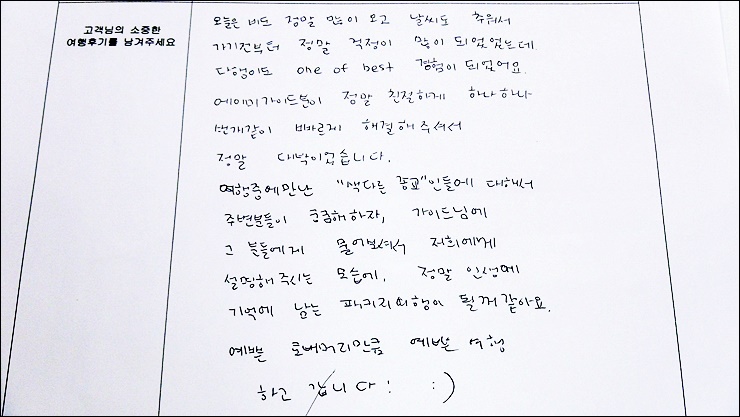 고객님의 소중한
여행후기를 남겨주세요
오늘은 비도 정말 많이 오고 날씨도 추워서
가기전부터 정말 걱정이 많이 되었었는데
다행이도 one of best 경험이 되었어요.
에이미가이드분이 정말 친절하게 하나하나
번개같이 빠르게 해결해주셔서
정말 대박이었습니다.
여행중에만난 "색다른 종교"인들에 대해서
주변분들이 궁금해하자, 가이드님에
그 분들에게 물어보셔서 저희에게
설명해주시는 모습에, 정말 인생에
기억에 남는 패키지여행이 될꺼같아요.
예쁜 로버머리만큼 예쁜 여행
하고 갑니다! :)